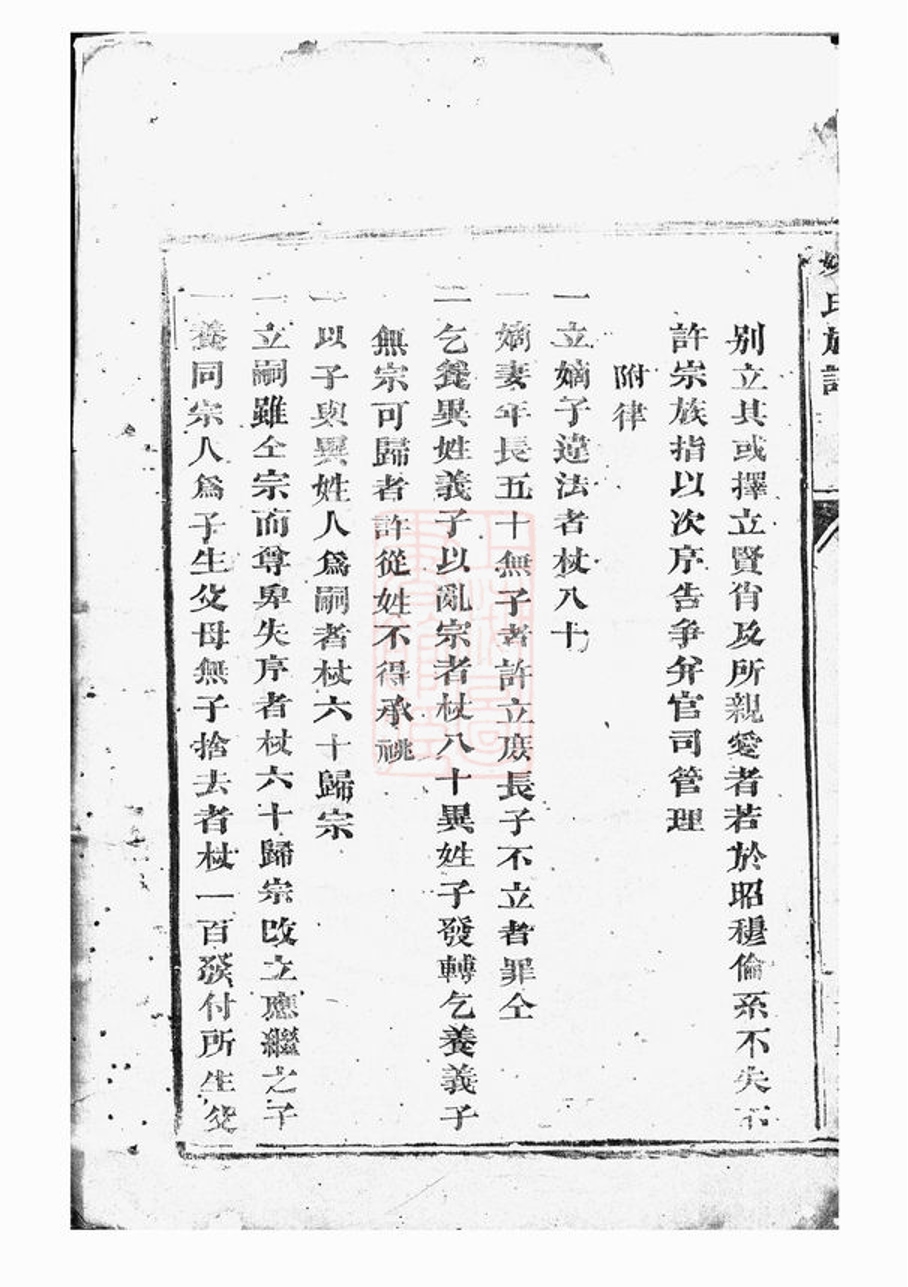 氏族譜
别立其或擇立賢肖及所親愛者若於昭穆倫系不失不
許宗族指以次序告爭弁官司管理
附律
一立嫡子違法者杖八十
一嫡妻年長五十無子者許立庶長子不立者罪仝
一乞養異姓義子以亂宗者杖八十異姓子發轉乞養義子
無宗可歸者許從姓不得承祧
一以子與異姓人爲嗣者杖六十歸宗
一立嗣雖仝宗而尊卑失序者杖六十歸宗改立應繼之子
一養同宗人爲子生父母無子捨去者杖一百發付所生父